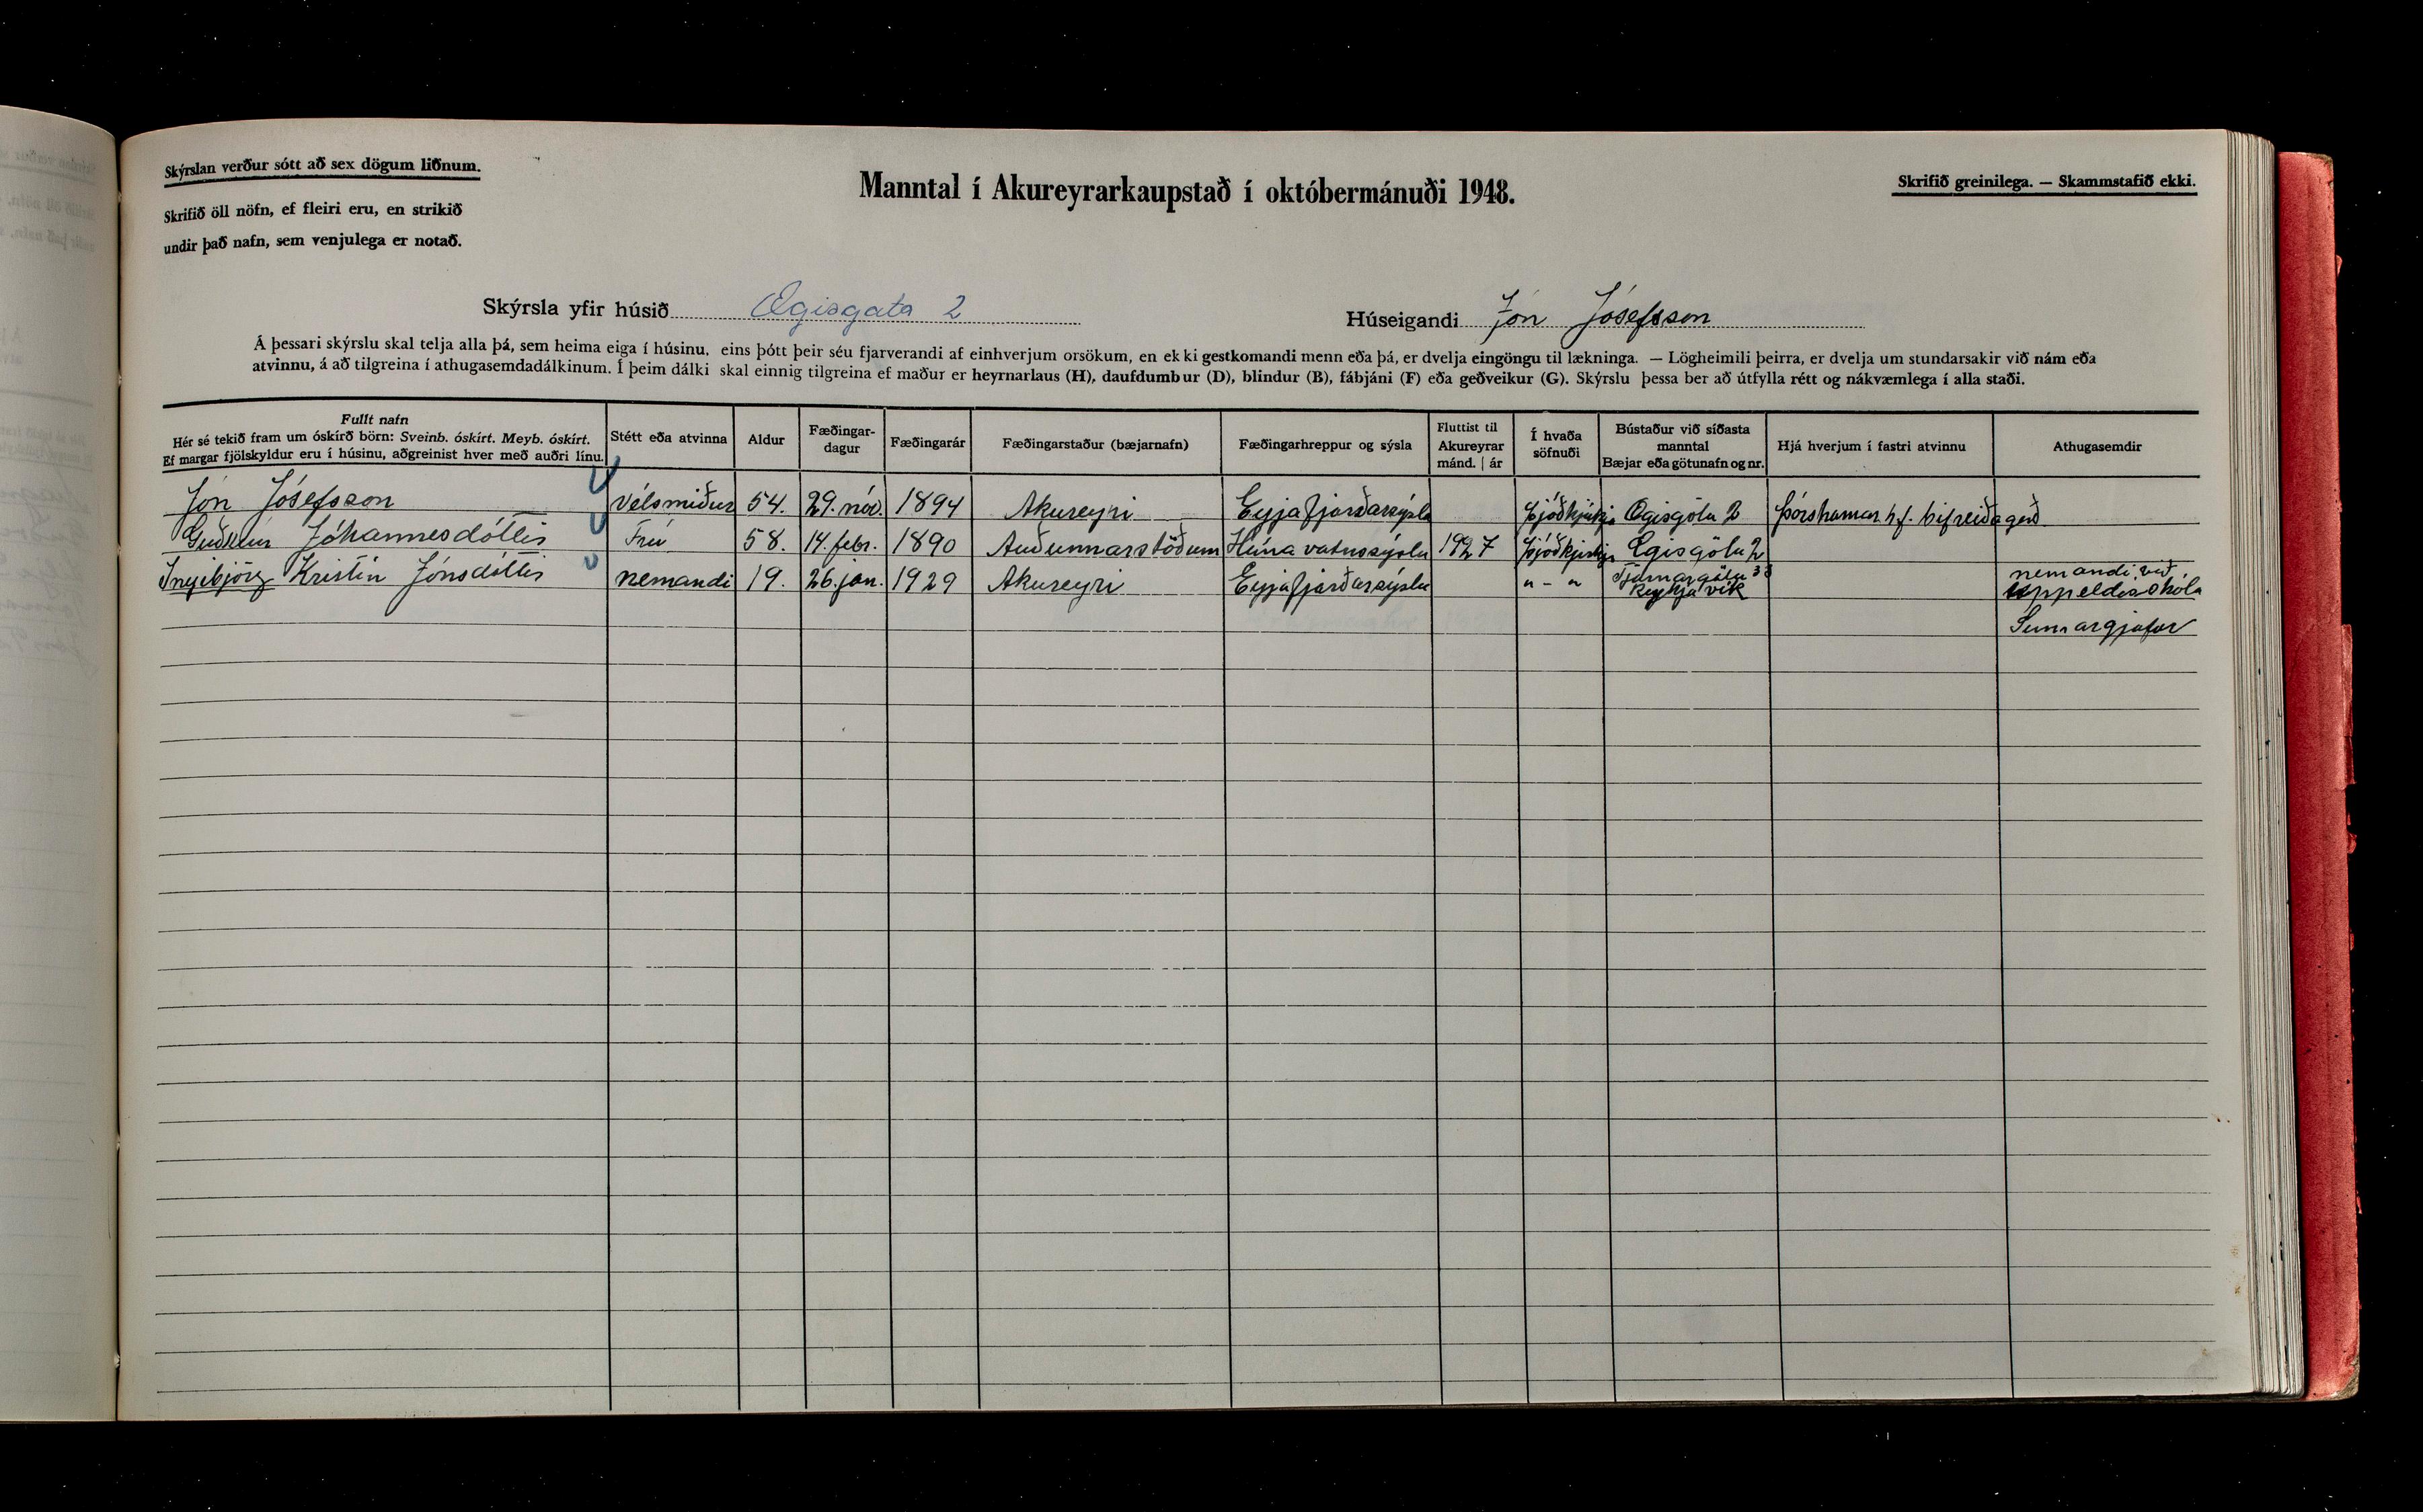 Skýrslan verður sótt að sex dögum liðnum.
Skrifið öll nöfn, ef fleiri eru, en strikið
undir það nafn, sem venjulega er notað.
Manntal í Akureyrarkaupstað í októbermánuði 1948.
Skrifið greinilega. — Skammstafið ekki.
Skýrsla yfir húsið Ægisgata 2
Húseigandi Jón Jósefsson
Á þessari skýrslu skal telja alla þá, sem heima eiga í húsinu, eins þótt þeir séu fjarverandi af einhverjum orsökum, en ekki gestkomandi menn eða þá, er dvelja eingöngu til lækninga. — Lögheimili þeirra, er dvelja um stundarsakir við nám eða
atvinnu, á að tilgreina í athugasemdadálkinum. Í þeim dálki skal einnig tilgreina ef maður er heyrnarlaus (H), daufdumbur (D), blindur (B), fábjáni (F) eða geðveikur (G). Skýrslu þessa ber að útfylla rétt og nákvæmlega í alla staði.
Fullt nafn
Hér sé tekið fram um óskírð börn: Sveinb. óskírt. Meyb. óskírt.
Ef margar fjölskyldur eru í húsinu, aðgreinist hver með auðri línu.
Stétt eða atvinna
Aldur
Fæðingar-
dagur
Fæðingarár
Fæðingarstaður (bæjarnafn)
Fæðingarhreppur og sýsla
Fluttist til
Akureyrar
mánd. | ár
Í hvaða
söfnuði
Bústaður við síðasta
manntal
Bæjar eða götunafn og nr.
Hjá hverjum í fastri atvinnu
Athugasemdir
Jón Jósefsson Vélsmiður 54. 29. nóv. 1894 Akureyri Eyjafjarðarsýsla Þjóðkirkju Ægisgötu 2 Þórshamar h.f. bifreiðagerð
Guðrún Jóhannesdóttir Frú 58. 14. febr. 1890 Auðunnarstöðum Húnavatnssýslu 1927 Þjóðkirkju Ægisgötu 2
Ingibjörg Kristín Jónsdóttir nemandi 19. 26. jan. 1929 Akureyri Eyjafjarðarsýslu " - " Tjarnargötu 33
Reykjavík
nemandi við
uppeldisskóla
Sumargjafar